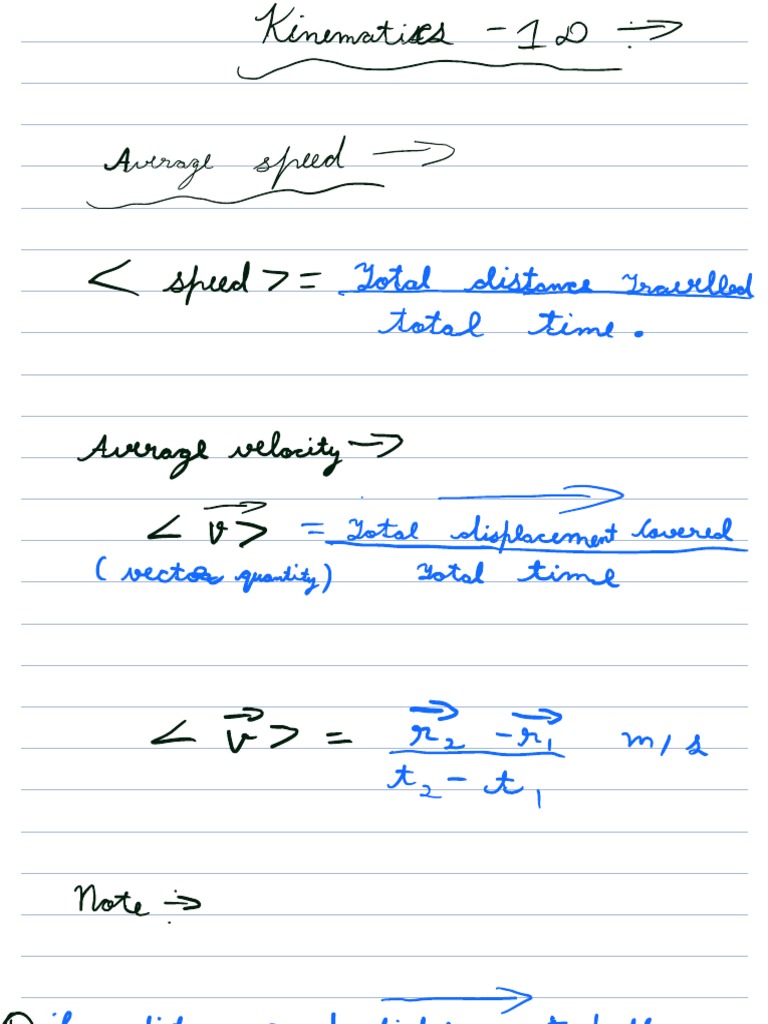 Kinematics - 1D ÷→
Average speed →
< speed > = Total distance travelled
total time.
Average velocity →
< v⃗ > = Total displacement covered
(vector quantity) Total time
< v⃗ > = r⃗₂ - r⃗₁ m/s
t₂ - t₁
Note ÷→